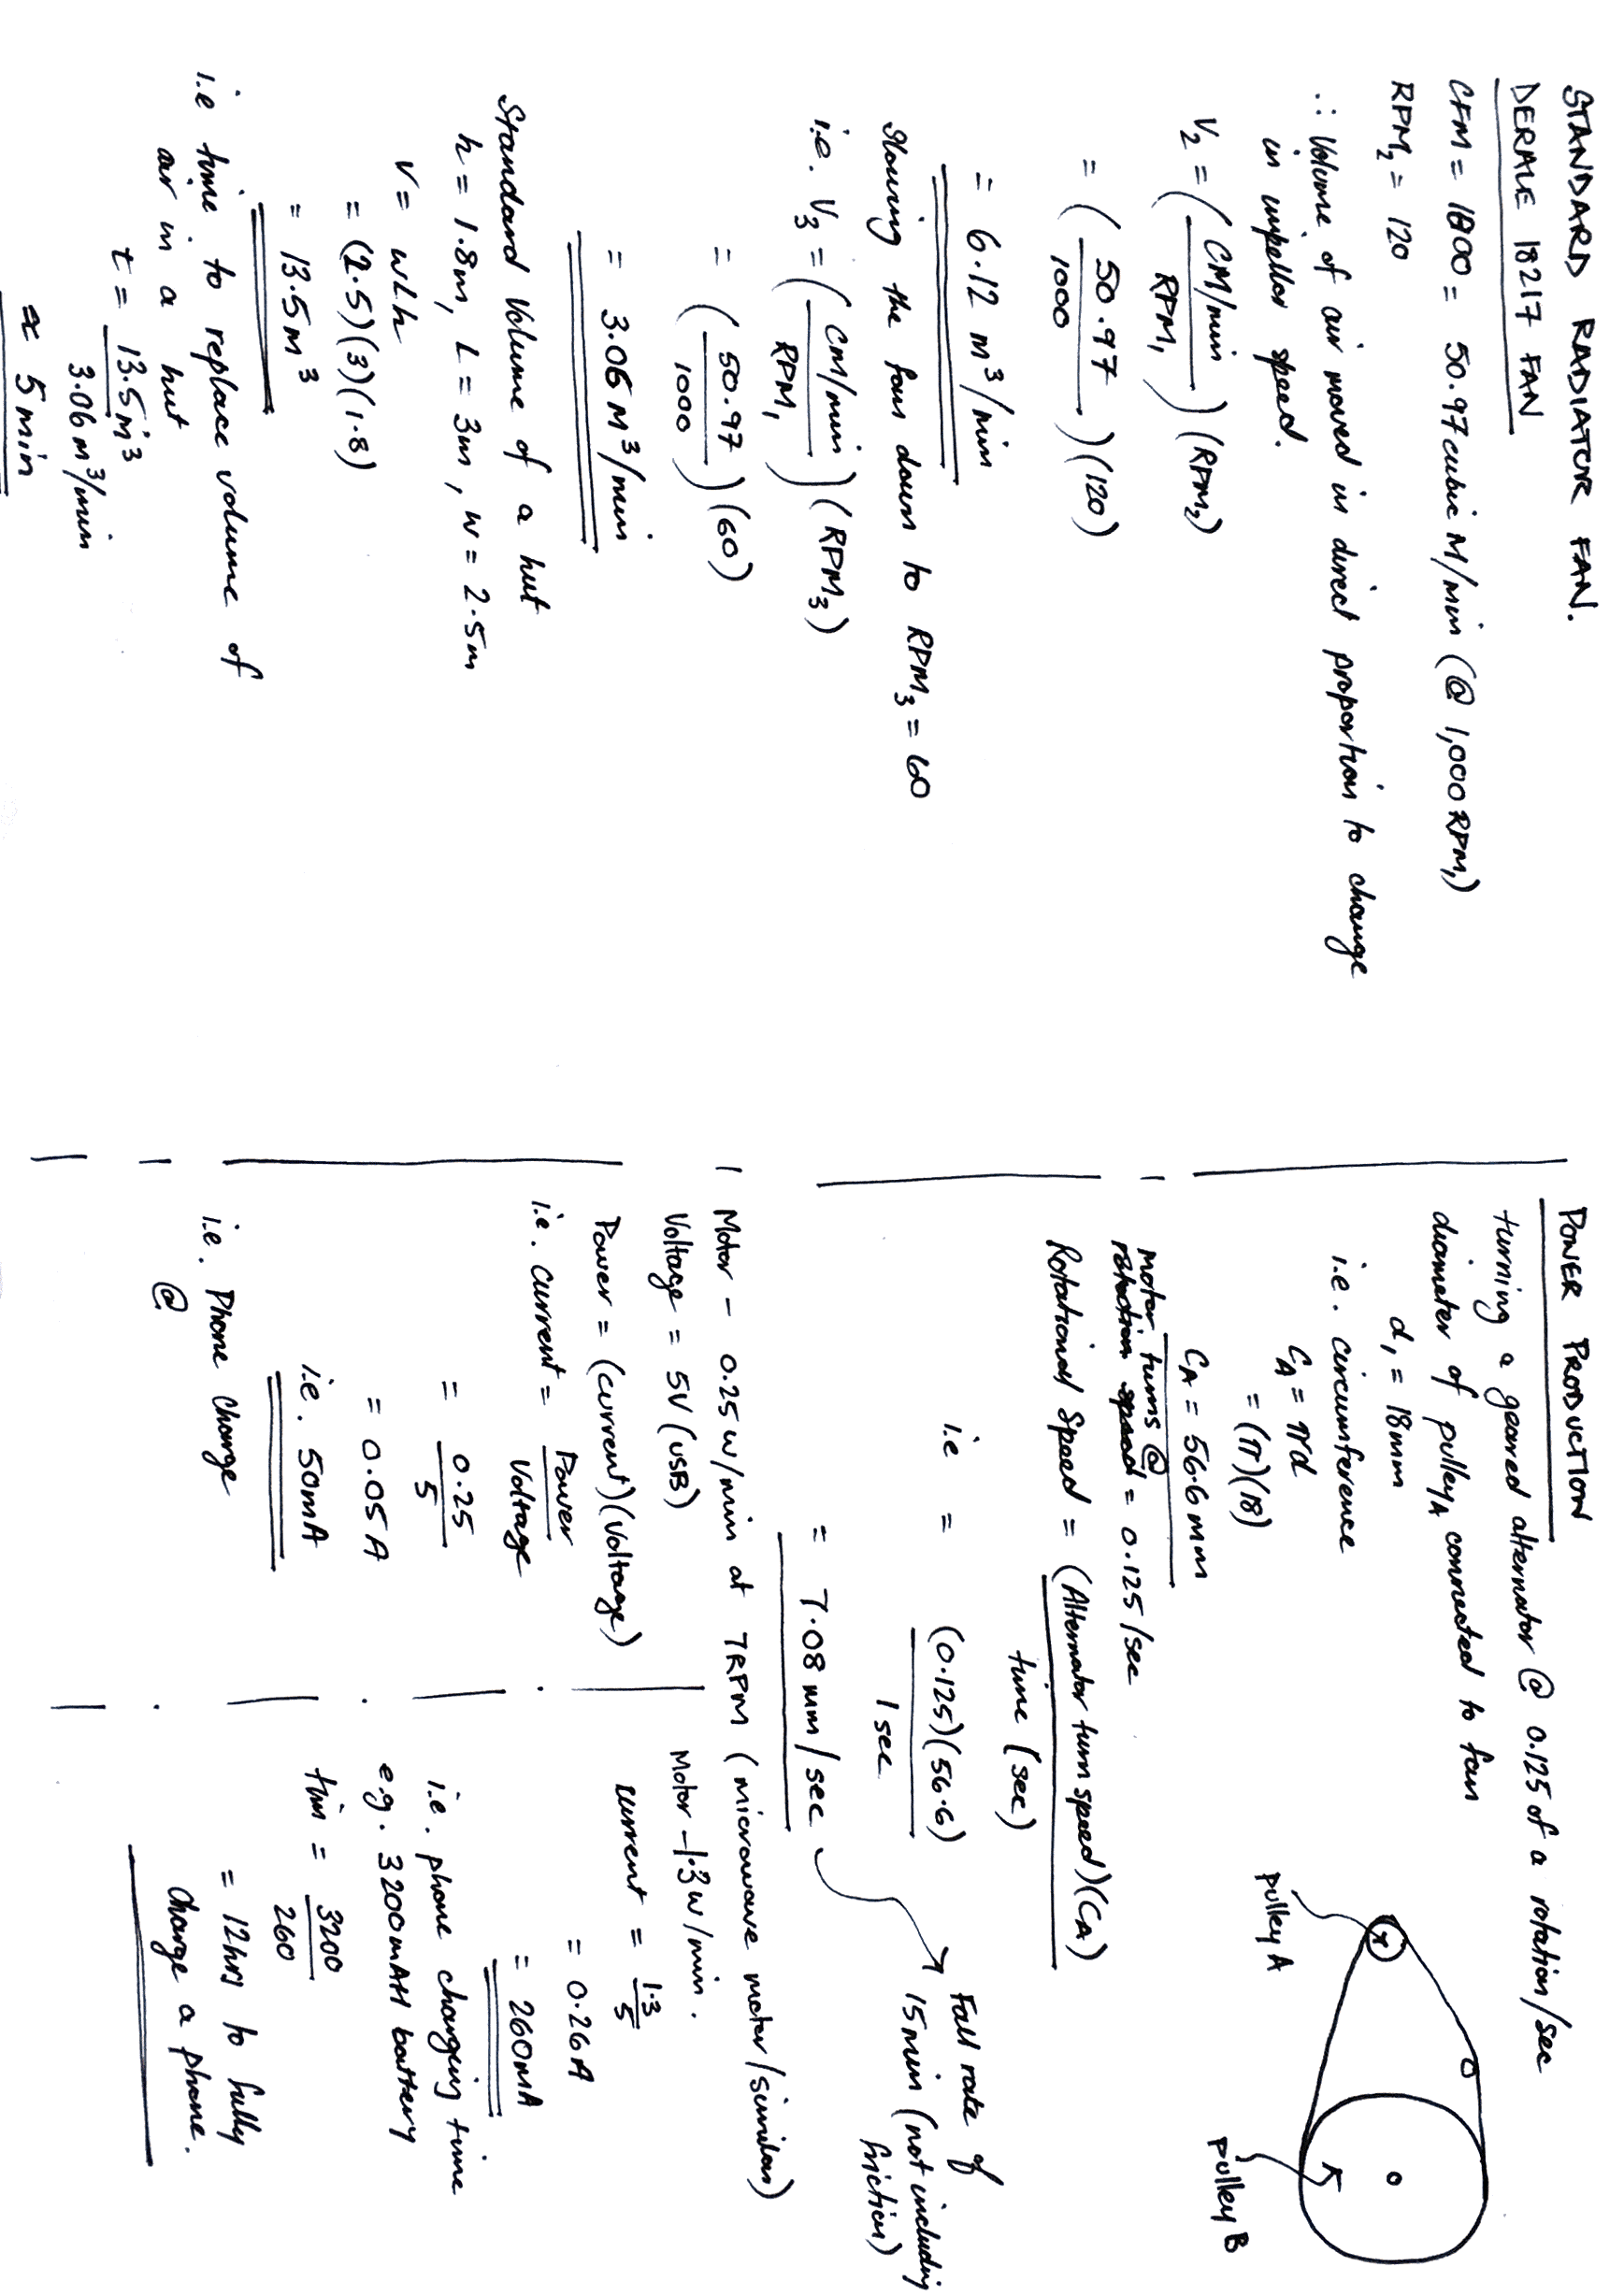 STANDARD RADIATOR FAN.
DERALE 18217 FAN
CFM = 1800 = 50.97 cubic M/min (@ 1,000 RPM₁)
RPM₂ = 120
∴ Volume of air moved in direct proportion to change
in impellor speed.
V₂ = (CM/min / RPM₁)(RPM₂)
= (50.97 / 1000)(120)
= 6.12 m³/min
Slowing the fan down to RPM₃ = 60
i.e. V₃ = (CM/min / RPM₁)(RPM₃)
= (50.97 / 1000)(60)
= 3.06 M³/min
Standard Volume of a hut
h = 1.8m, L = 3m, w = 2.5m
V = wLh
= (2.5)(3)(1.8)
= 13.5m³
i.e time to replace volume of
air in a hut
t = 13.5m³ / 3.06m³/min
≈ 5min
POWER PRODUCTION
turning a geared alternator @ 0.125 of a rotation/sec
diameter of pulley A connected to fan
d₁ = 18mm
i.e. circumference
C_A = πd
= (π)(18)
C_A = 56.6mm
motor turns @
rotation speed = 0.125/sec
Rotational Speed = (Alternator turn speed)(C_A)
time (sec)
i.e = (0.125)(56.6)
1 sec
= 7.08 mm/sec
Fall rate of
15min (not including
friction)
pulley A
pulley B
Motor - 0.25w/min at 7RPM (microwave motor/similar)
Voltage = 5V (USB)
Power = (current)(Voltage)
i.e. current = Power / Voltage
= 0.25 / 5
= 0.05A
i.e. 50mA
i.e. Phone Charge
@
Motor - 1.3w/min.
current = 1.3 / 5
= 0.26A
= 260mA
i.e. phone charging time
e.g. 3200mAH battery
tim = 3200 / 260
= 12hrs to fully
charge a phone.